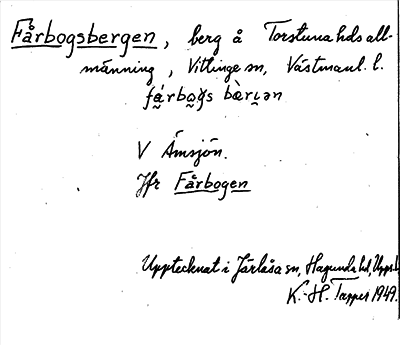 Fårbogsbergen, berg å Torstuna hds all-
männing, Vittinge sn, Västmanl. l.
V Ämsjön.
Jfr Fårbogen
Upptecknat i Järlåsa sn, Hagunda hd, Upps. l.
K.-H. Tapper 1949.